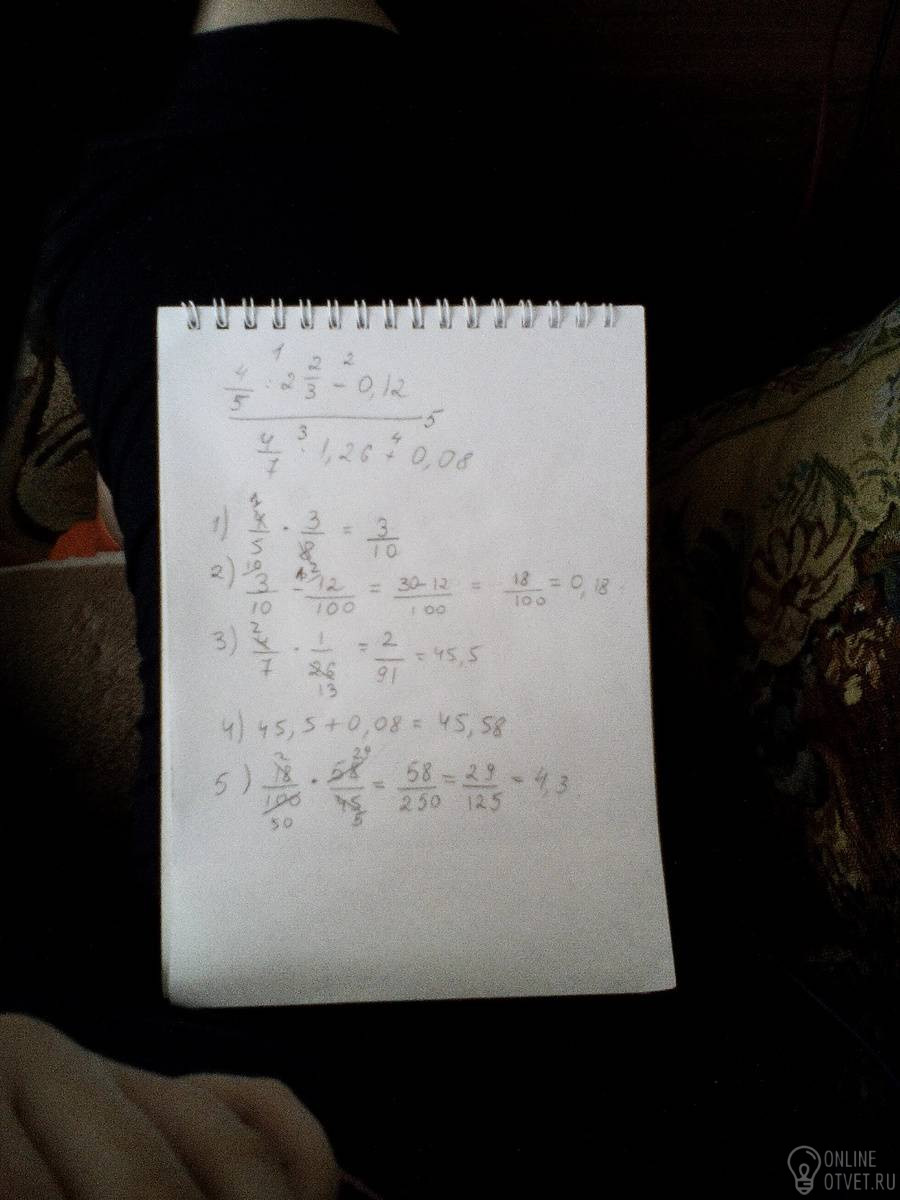 4/5 : 2 2/3 - 0,12
4/7 · 1,26 + 0,08
1) 4/5 · 3/8 = 3/10
2) 3/10 - 12/100 = 30-12/100 = 18/100 = 0,18
3) 4/7 · 1/26 = 2/91 = 45,5
4) 45,5 + 0,08 = 45,58
5) 18/100 · 58/45 = 58/250 = 29/125 = 4,3
ONLINE
OTVET.RU